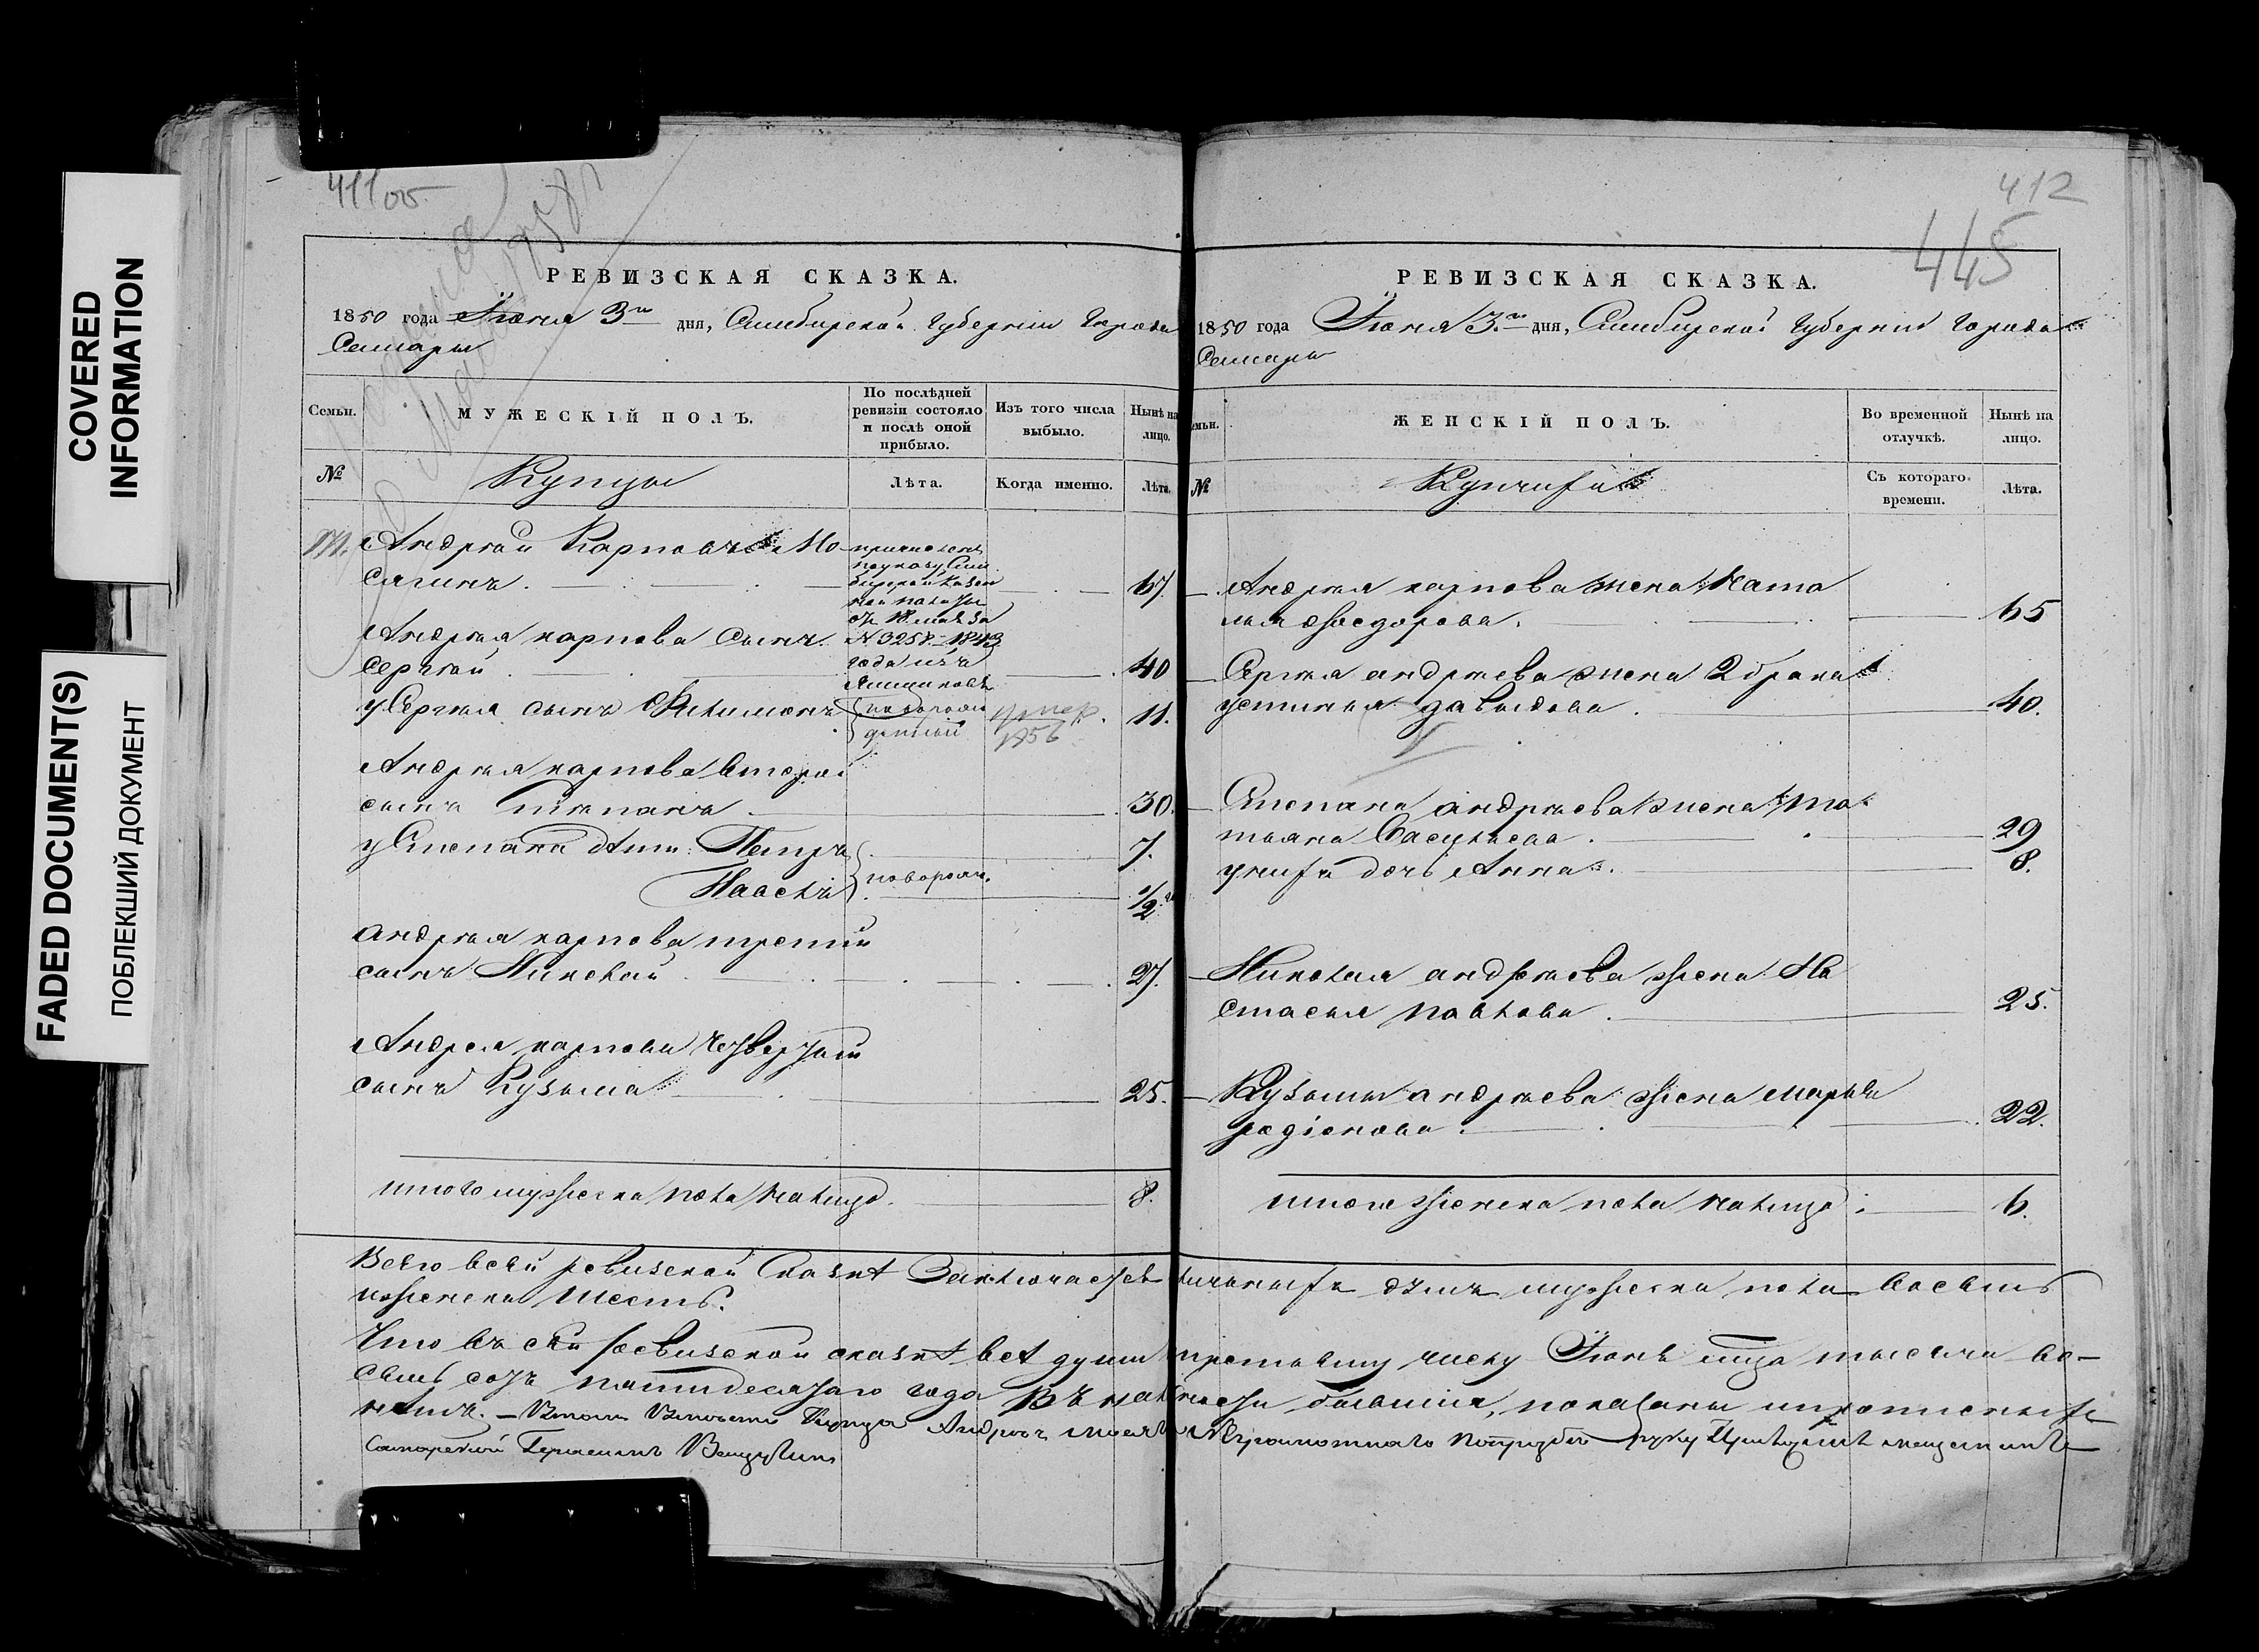 COVERED
INFORMATION
FADED DOCUMENT(S)
ПОБЛЕКШИЙ ДОКУМЕНТ
411об
РЕВИЗСКАЯ СКАЗКА.
1850 года Іюня 3го дня, Симбирской Губерніи Города
Самары
Семьи.
МУЖЕСКІЙ ПОЛЪ.
По послѣдней ревизіи состояло и послѣ оной прибыло.
Изъ того числа выбыло.
Нынѣ на лицо.
№
Купцы
Лѣта.
Когда именно.
Лѣта.
Андрей Карповъ Мо-
сягинъ. 67.
причисленъ
по указу Сим
бирской Казен
ной палаты
N 3258. 1843
года изъ
Андрея карпова Сынъ
Сергей 40
у Сергея сынъ Филимонъ 11.
новорож
денный
умер.
1856
Андрея карпова второй
сынъ Степанъ 30.
у Степана дѣти: Петръ 7.
Павелъ 1/2
новорож.
андрея карпова третій
сынъ Николай 27.
Андрея карпова Четвертый
сынъ Кузьма 25.
итого мужеска пола налицо. 8.
412
445
РЕВИЗСКАЯ СКАЗКА.
1850 года Іюня 3го дня, Симбирской Губерніи Города
Самары
Семьи.
ЖЕНСКІЙ ПОЛЪ.
Во временной отлучкѣ.
Нынѣ на лицо.
№
Съ котораго времени.
Лѣта.
Андрея карпова жена Ната
лья Федорова. 65
Сергея андреева жена 2 брака
устинья давыдова 40.
Степана андреева жена Та
тьяна Васильева 29
у нихъ дочь Анна 8.
Николая андреева жена На
стасья павлова 25.
Кузьмы андреева жена марья
родіонова 22.
итого женска пола налицо 6.
Всего всей ревизской Сказкѣ Заключается наличныхъ душъ мужеска пола восемь
и женска Шесть.
Что въ сей ревизской сказкѣ всѣ души по третьему числу Іюня мца тысяча во-
семь сотъ пятидесятаго года въ наличности бывшія, показаны и прописныхъ
нѣтъ. Купца неграмотнаго руку мещанинъ
Самарской